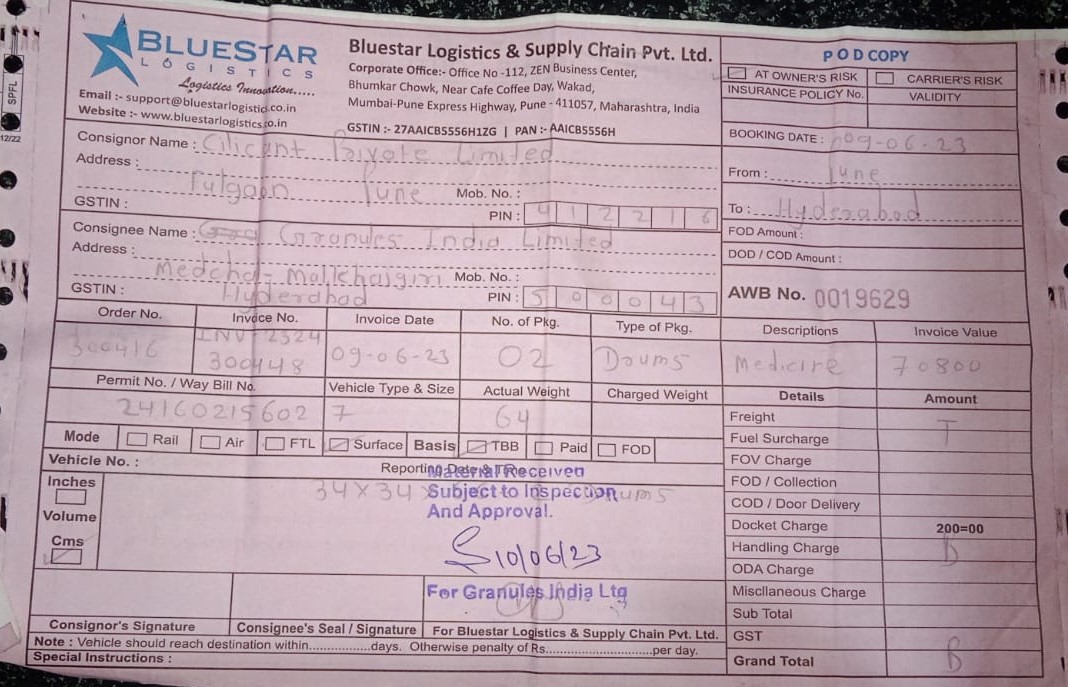 SPFL
12/22
BLUESTAR
LOGISTICS
Logistics Innovation.....
Email :- support@bluestarlogistic.co.in
Website :- www.bluestarlogistics.co.in
Bluestar Logistics & Supply Chain Pvt. Ltd.
Corporate Office:- Office No -112, ZEN Business Center,
Bhumkar Chowk, Near Cafe Coffee Day, Wakad,
Mumbai-Pune Express Highway, Pune - 411057, Maharashtra, India
GSTIN :- 27AAICB5556H1ZG | PAN :- AAICB5556H
POD COPY
AT OWNER'S RISK CARRIER'S RISK
INSURANCE POLICY No. VALIDITY
BOOKING DATE : 09-06-23
From : Pune
To : Hyderabad
FOD Amount :
DOD / COD Amount :
AWB No. 0019629
Consignor Name : Cilicant Private Limited
Address :
Fulgaon Pune Mob. No. :
GSTIN : PIN : 412216
Consignee Name : Granules India Limited
Address :
Medchal-Malkhajgiri Mob. No. :
GSTIN : Hyderabad PIN : 500043
Order No. Invoice No. Invoice Date No. of Pkg. Type of Pkg. Descriptions Invoice Value
300416 INV-2324 300448 09-06-23 02 Drums Medicine 70800
Permit No. / Way Bill No. Vehicle Type & Size Actual Weight Charged Weight Details Amount
24160215602 7 64
Mode Rail Air FTL Surface Basis TBB Paid FOD
Vehicle No. : Reporting Date & Time
Inches
Volume
Cms
34x34 Drums
Material Received
Subject to Inspection
And Approval.
10/06/23
For Granules India Ltd
Freight T
Fuel Surcharge
FOV Charge
FOD / Collection
COD / Door Delivery
Docket Charge 200=00
Handling Charge B
ODA Charge
Miscllaneous Charge
Sub Total
GST
Grand Total B
Consignor's Signature Consignee's Seal / Signature For Bluestar Logistics & Supply Chain Pvt. Ltd.
Note : Vehicle should reach destination within................days. Otherwise penalty of Rs...........................per day.
Special Instructions :